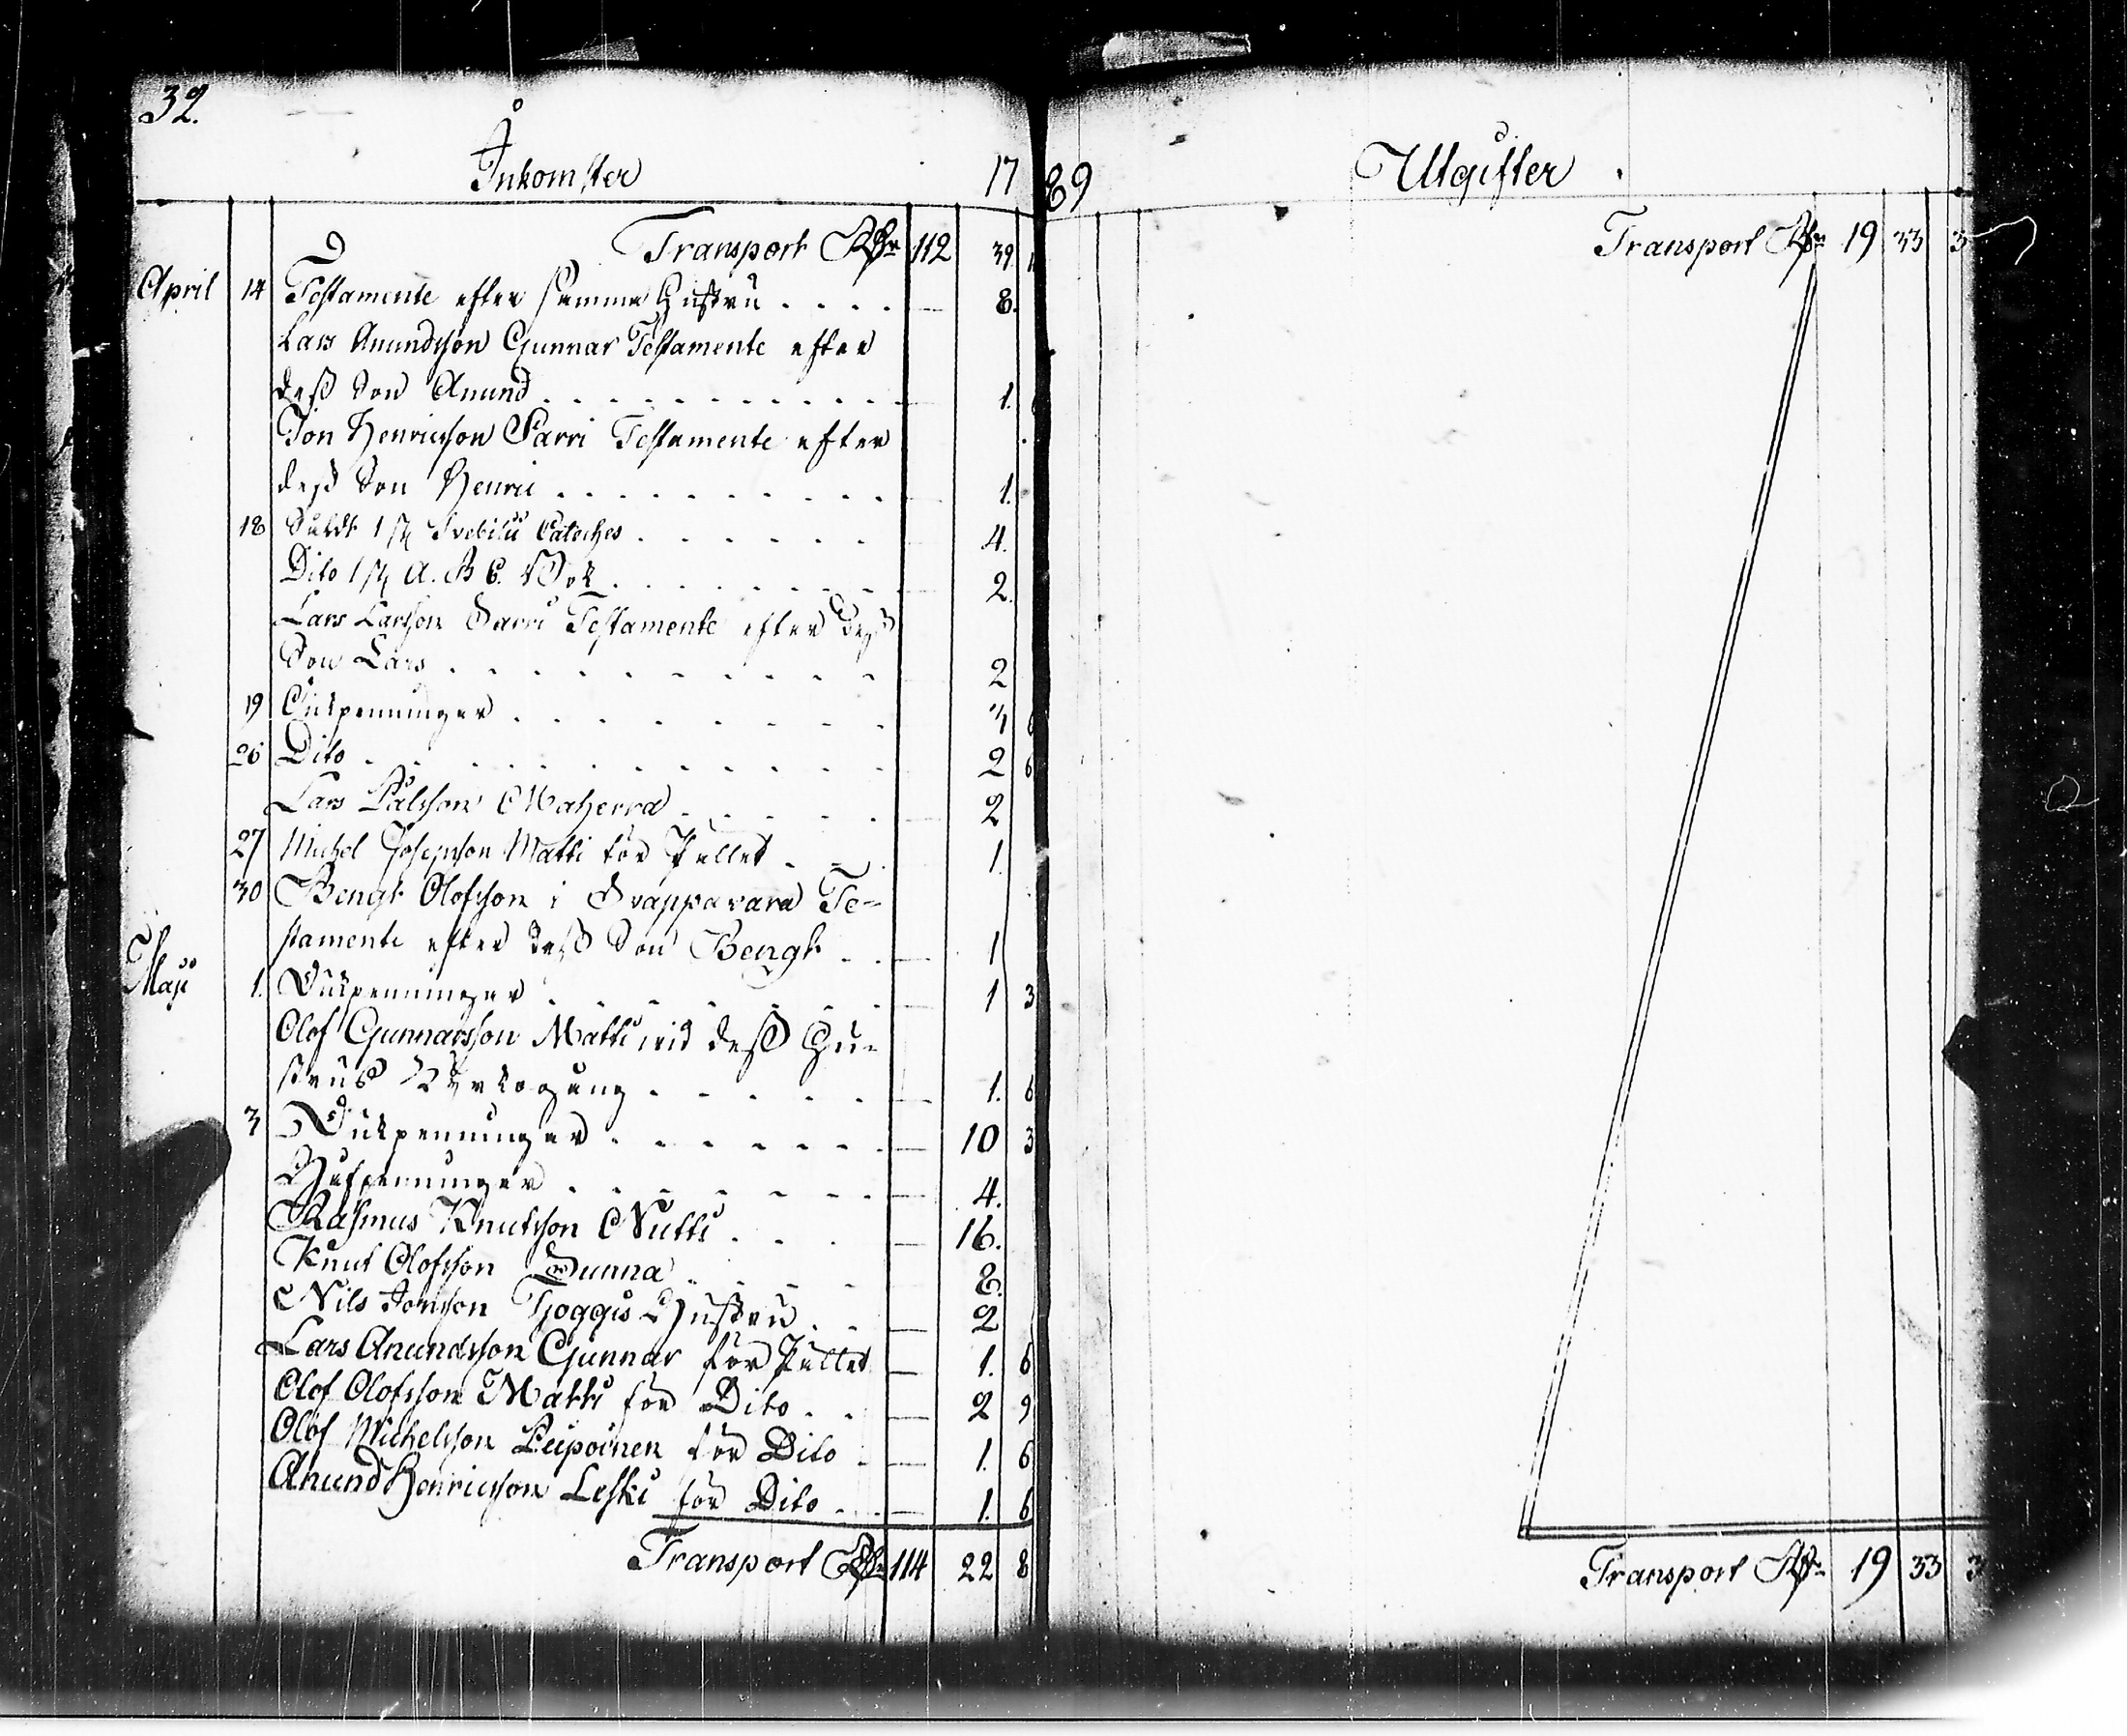 32.
Å
Inkomster 17
Transport Rdr 112 39.
April 14 Testamente efter samma Hustru . . . . — 8.
Lars Anundsson Gunnar Testamente efter
dess Son Anund . . . . . . . . . . — 1.
Jon Henricsson Sarri Testamente efter
dess Son Henric . . . . . . . . . — 1.
18 Såldt 1 st Svebilii Cateches . . . . . . 4.
Dito 1 st A. B C. Bok . . . . . . . . 2.
Lars Larsson Sarri Testamente efter dess
Son Lars . . . . . . . . . . 2
19 Cukpenningar . . . . . . . . 3 6
26 Dito . . . . . . . . . . 2 6
Lars Pålsson Maherra . . . . . 2
27 Michel Josepsson Matti för Pallet . . . 1.
30 Bengt Olofsson i Svappavara Te-
stamente efter dess Son Bengt . . — 1
Maji 1. Cukpenningar . . . . . . . — 1 3
Olof Gunnarsson Matti vid dess Hu-
strus Kyrkogång . . . . . — 1. 6
3 Cukpenningar . . . . . . — 10 3
Håfpenningar . . . . . . . — 4.
Rasmus Knutsson Nutti . . . — 16.
Knut Olofsson Sunna . . . . 8.
Nils Jonsson Tjoggis Hustru . . — 2
Lars Anundsson Gunnar för Pallet — 1. 6
Olof Olofsson Matti för Dito . . — 2 9
Olof Michelsson Peipoinen för Dito . — 1. 6
Anund Henricsson Leski för Dito . . — 1. 6
Transport Rdr 114 22 8
89 Utgifter .
Transport Rdr 19 33 3
Transport Rdr 19 33 3